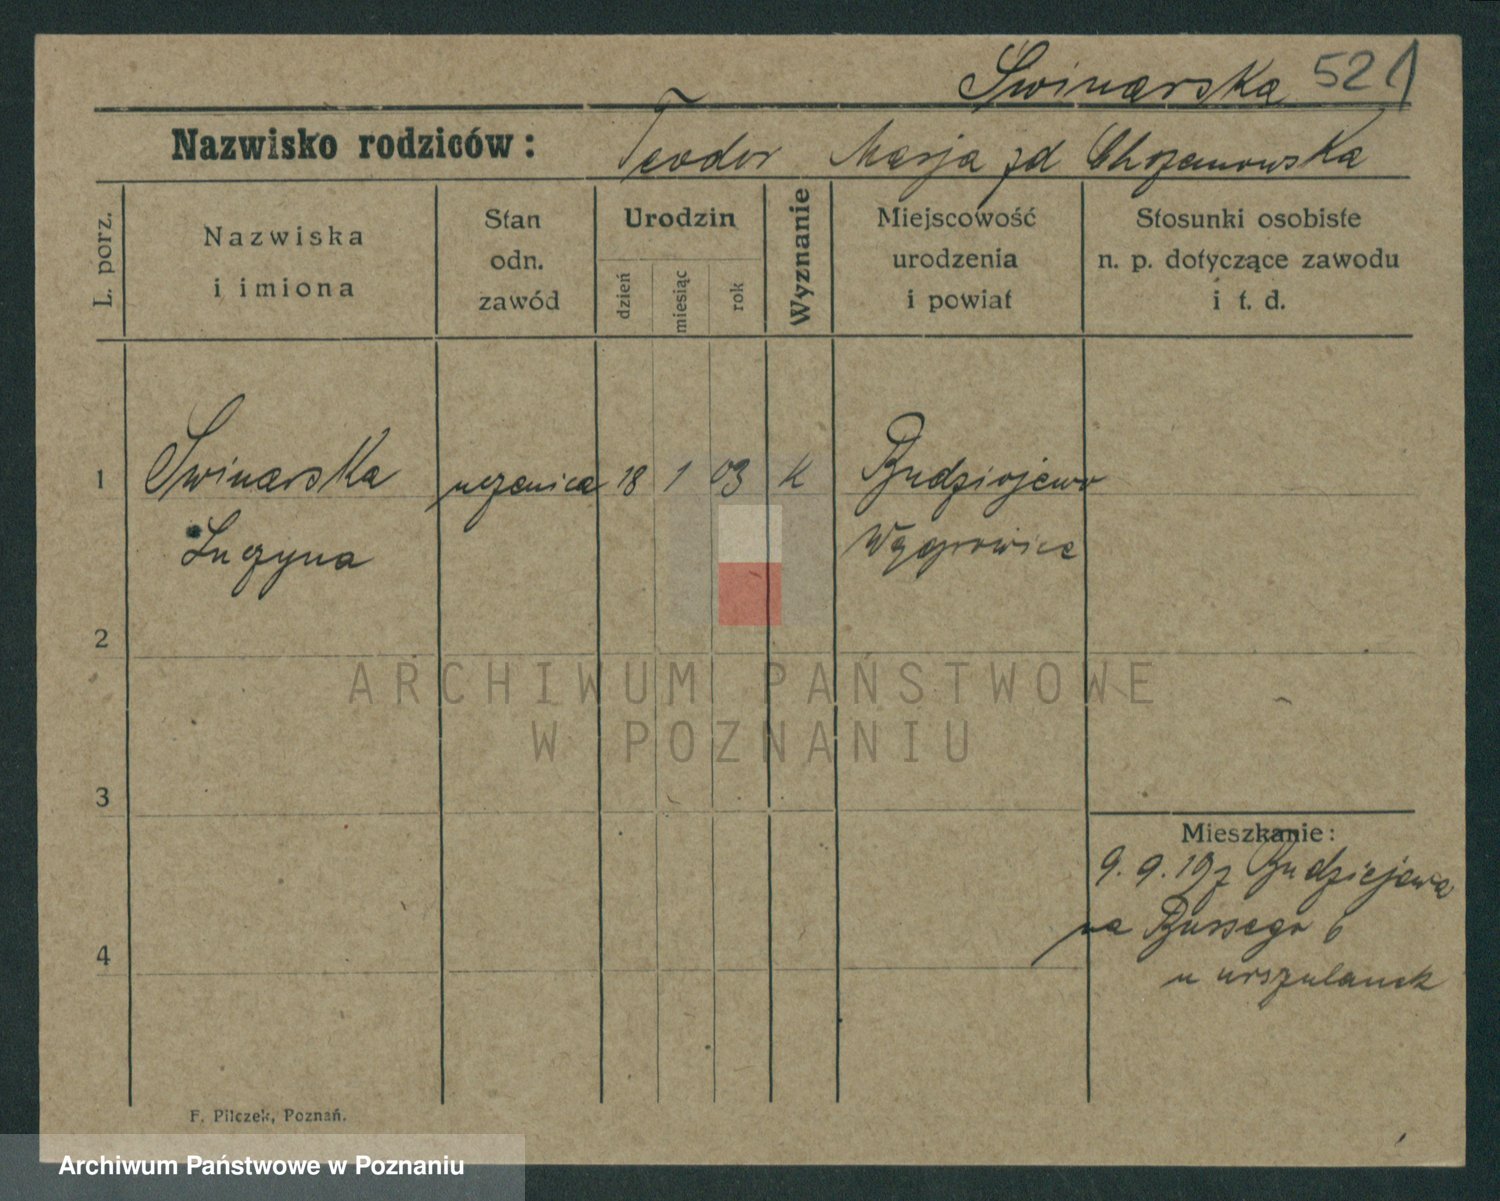 Swinarska 521
Nazwisko rodziców: Teodor Marja zd Chrzanowska
L. porz.
Nazwiska
i imiona
Stan
odn.
zawód
Urodzin
dzień
miesiąc
rok
Wyznanie
Miejscowość
urodzenia
i powiat
Stosunki osobiste
n. p. dotyczące zawodu
i t. d.
1 Swinarska uczenica 18 1 03 k Budziejewo
Łuczyna Wągrowiec
2
ARCHIWUM PAŃSTWOWE
W POZNANIU
3
Mieszkanie:
9. 9. 19 z Budziejewa
na Bussego 6
4
u urszulanek
F. Pilczek, Poznań.
Archiwum Państwowe w Poznaniu